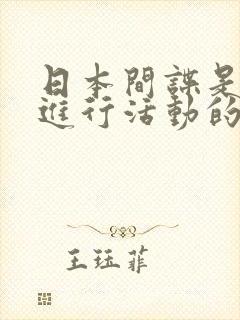 日本間諜是
進行活動的
王珏菲